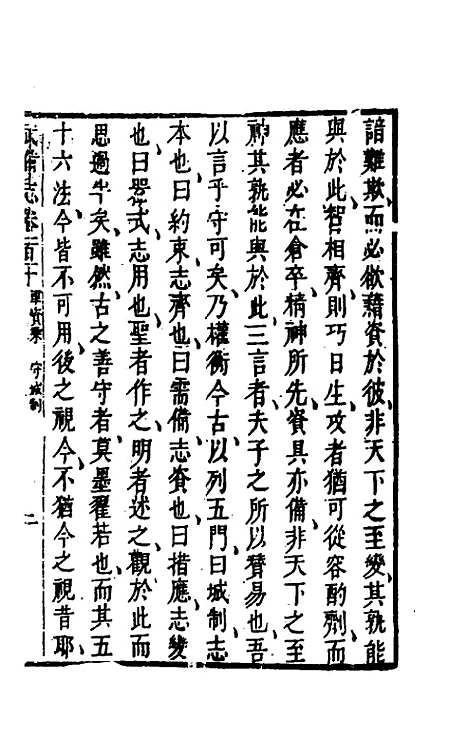 諳難欺而必欲藉資於彼非天下之至變其孰能
與於此智相齊則巧日生攻者猶可從容酌劑而
應者必在倉卒精神所先資具亦備非天下之至
神其孰能與於此三言者夫子之所以贊易也吾
以言乎守可矣乃權衡今古以列五門曰城制志
本也曰約束志齊也曰需備志資也曰措應志變
也曰器式志用也聖者作之明者述之觀於此而
思過半矣雖然古之善守者莫墨翟若也而其五
十六法今皆不可用後之視今不猶今之視昔耶
武備志卷一百十 軍資乘 守城制 二